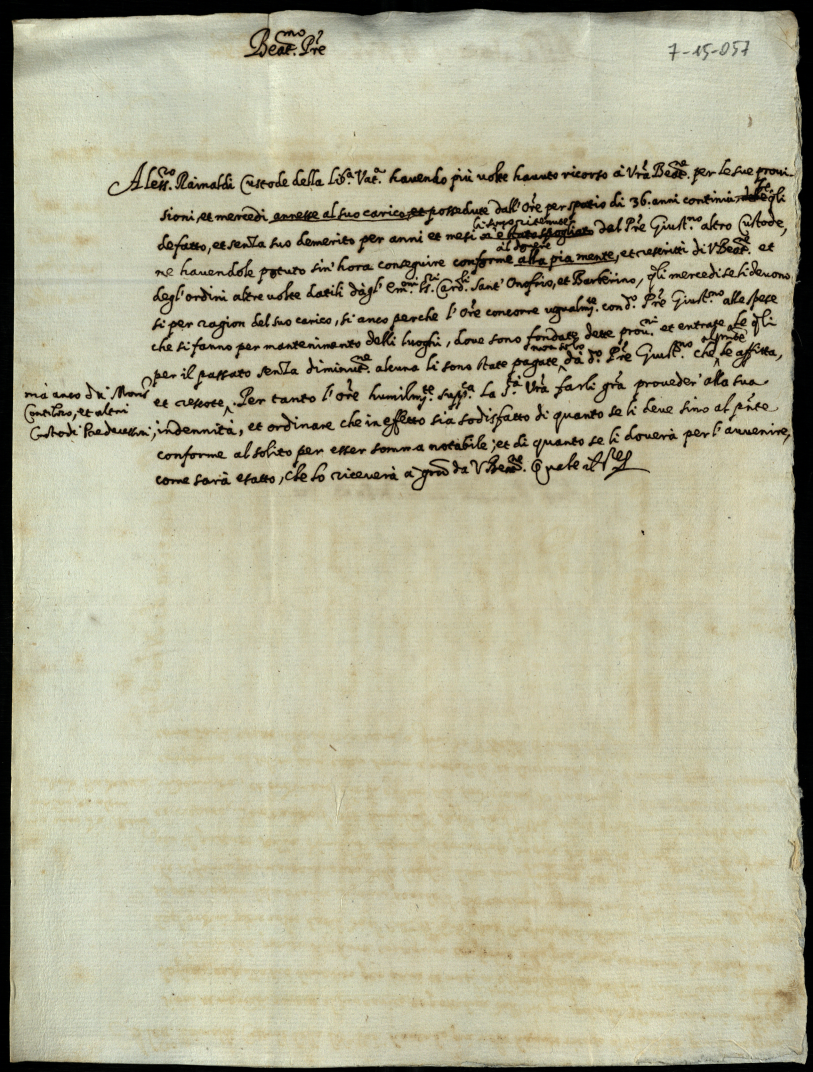 Beat.mo Pre
7-15-057
Aless.ro Rainaldi Custode della Lib.a Vat.a havendo più volte hauto ricorso à Vra Beat.ne per le sue provi-
sioni, et mercedi annesse al suo carico, et possedute dall'Ore per spatio di 36. anni continui,
de fatto, et senza suo demerito per anni et mesi è stato spogliato dal Pre Giust.no altro Custode,
al dovere
ne havendole potuto sin' hora conseguire conforme alla pia mente, et rescritti di V Beat.ne et
degl'ordini altre volte datili dàgl' Em.mi SS.ri Card.li Sant' Onofrio, et Barberino, q.li mercedi se li devono
si per ragion del suo carico, si anco perche l' Ore concorre ugualm.te con d.o Pre Giust.no alle spese
che si fanno per mantenimento delli luoghi, dove sono fondate dette prov.ni et entrate, le q.li
non solo
per il passato senza diminut.ne alcuna li sono state pagate dà d.o Pre Giust.no che le affitta,
mà anco da Mons.r
Contiloro, et altri
Custodi Predecessori,
et riscote. Per tanto l' Ore humilm.te supp.ca La S.tà Vra farli gra proveder' alla sua
indennità, et ordinare che in effetto sia sodisfatto di quanto se li deve sino al pnte
conforme al solito per esser somma notabile; et di quanto se li doverà per l'avvenire,
come sarà esatto, che lo riceverà à gra da V Beat.ne. Quale il